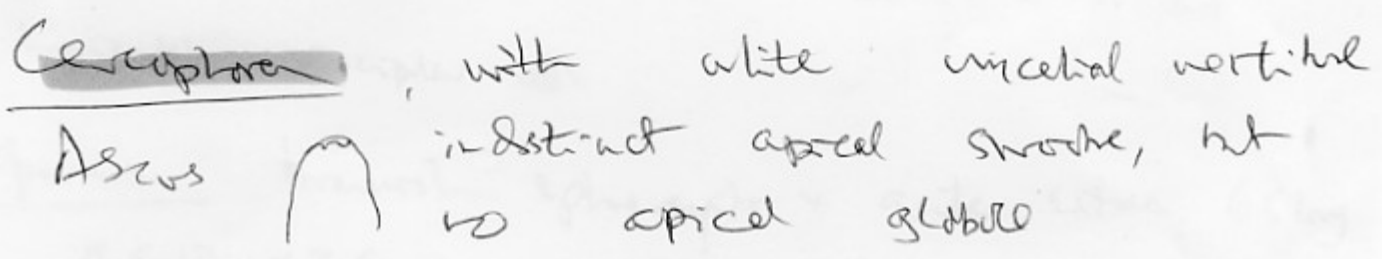 Cercophora, with white mycelial vestiture
Ascus indistinct apical structure, but
no apical globule